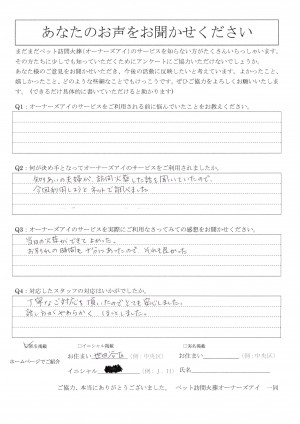 あなたのお声をお聞かせください
まだまだペット訪問火葬(オーナーズアイ)のサービスを知らない方がたくさんいらっしゃいます。
その方たちに少しでも知っていただくためにアンケートにご協力いただけないでしょうか。
あなた様のご意見をお聞かせいただき、今後の活動に反映したいと考えています。よかったこと、
嬉しかったこと、どのような些細なことでもけっこうです。ぜひご協力をよろしくお願いいたします。(できるだけ具体的に書いていただけると助かります)
Q1：オーナーズアイのサービスをご利用される前に悩んでいたことをお教えください。
Q2：何が決め手となってオーナーズアイのサービスをご利用されましたか。
知りあいの夫婦が、訪問火葬した話を聞いていたので、
今回利用しようとネットで調べました。
Q3：オーナーズアイのサービスを実際にご利用なさってみての感想をお聞かせください。
当日の火葬ができてよかった。
お別れの時間も十分にあったので、それも良かった。
Q4：対応したスタッフの対応はいかがでしたか。
丁寧なご対応を頂いたのでとても安心しました。
話し方がやわらかく ほっとしました。
匿名掲載 □イニシャル掲載 □実名掲載
ホームページでご紹介
お住まい 世田谷区 (例：中央区) お住まい (例：中央区)
イニシャル (例：J．H) 氏名
ご協力、本当にありがとうございました。 ペット訪問火葬オーナーズアイ 一同